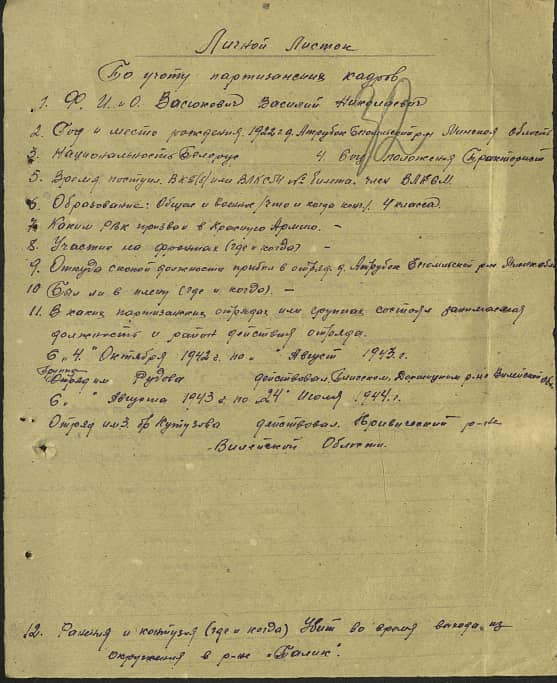 Личной Листок
По учоту партизанских кадров
32
1. Ф. И. и О. Васюкович Василий Николаевич
2. Год и место рождения. 1922 г д. Атрубок Бегомльский р-н Минская область
3. Национальность Белорус 4. Соц. положения Тракторист
5. Время поступл. в ВКП(б) или ВЛКСМ № билета. член ВЛКСМ.
6. Образование: Общее и военное /что и когда конч/. 4 класса.
7. Каким РВК призван в Красную Армию. –
8. Участие на фронтах (где и когда) –
9. Откуда с какой должности прибыл в отряд. д. Атрубок Бегомльский р-н Минской обл
10 Был ли в плену (где и когда). –
11. В каких партизанских отрядах или группах состоял занимаемая
должность и район действия отряда.
С „4." Октября 1942 г. по „ " Август 1943 г.
Отряд им Рудова действовал Докшицком р-не Вилейской обл.
С „ " Августа 1943 г. по 24" Июля 1944 г.
Отряд им3. бр Кутузова действовал. Кривический р-не
Вилейской Области.
12. Ранения и контузия (где и когда) Убит во время выхода из
окружения в р-не „Палик".